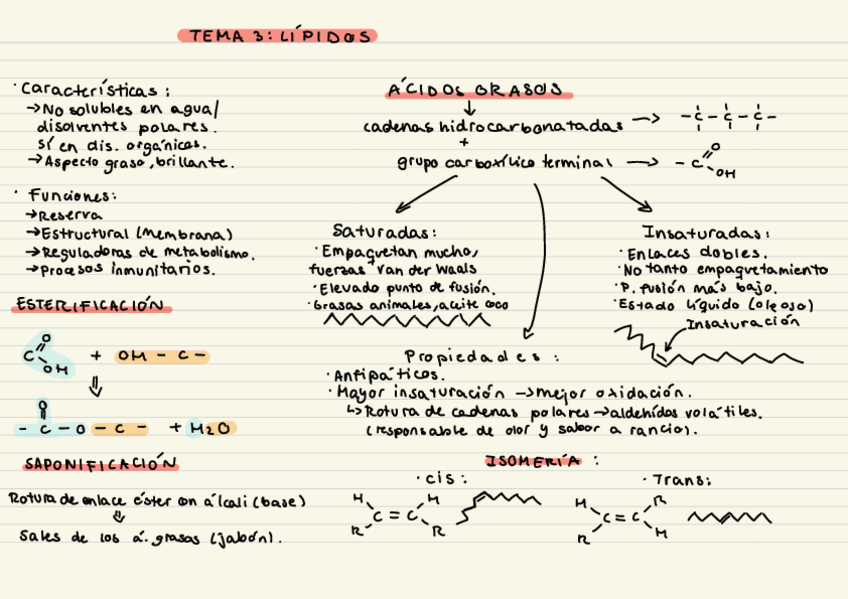 TEMA 3: LÍPIDOS
· Características:
→ No solubles en agua/
disolventes polares.
sí en dis. orgánicos.
→ Aspecto graso, brillante.
· Funciones:
→ Reserva
→ Estructural (membrana)
→ Reguladoras de metabolismo.
→ Procesos inmunitarios.
ESTERIFICACIÓN
C O OH + OH - C -
⇓
O
- C - O - C - + H2O
SAPONIFICACIÓN
Rotura de enlace éster con álcali (base)
⇓
Sales de los á. grasos (jabón).
ÁCIDOS GRASOS
↓
cadenas hidrocarbonatadas → - C - C - C -
+
grupo carboxílico terminal → - C O OH
Saturadas:
· Empaquetan mucho,
fuerzas + van der Waals
· Elevado punto de fusión.
· Grasas animales, aceite coco
Insaturadas:
· Enlaces dobles.
· No tanto empaquetamiento
· P. fusión más bajo.
· Estado líquido (oleoso)
Insaturación
Propiedades:
· Antipáticos.
· Mayor insaturación → mejor oxidación.
↳ Rotura de cadenas polares → aldehídos volátiles.
(responsable de olor y sabor a rancio).
ISOMERÍA:
· cis:
H H
C = C
R R
· Trans:
H R
C = C
R H